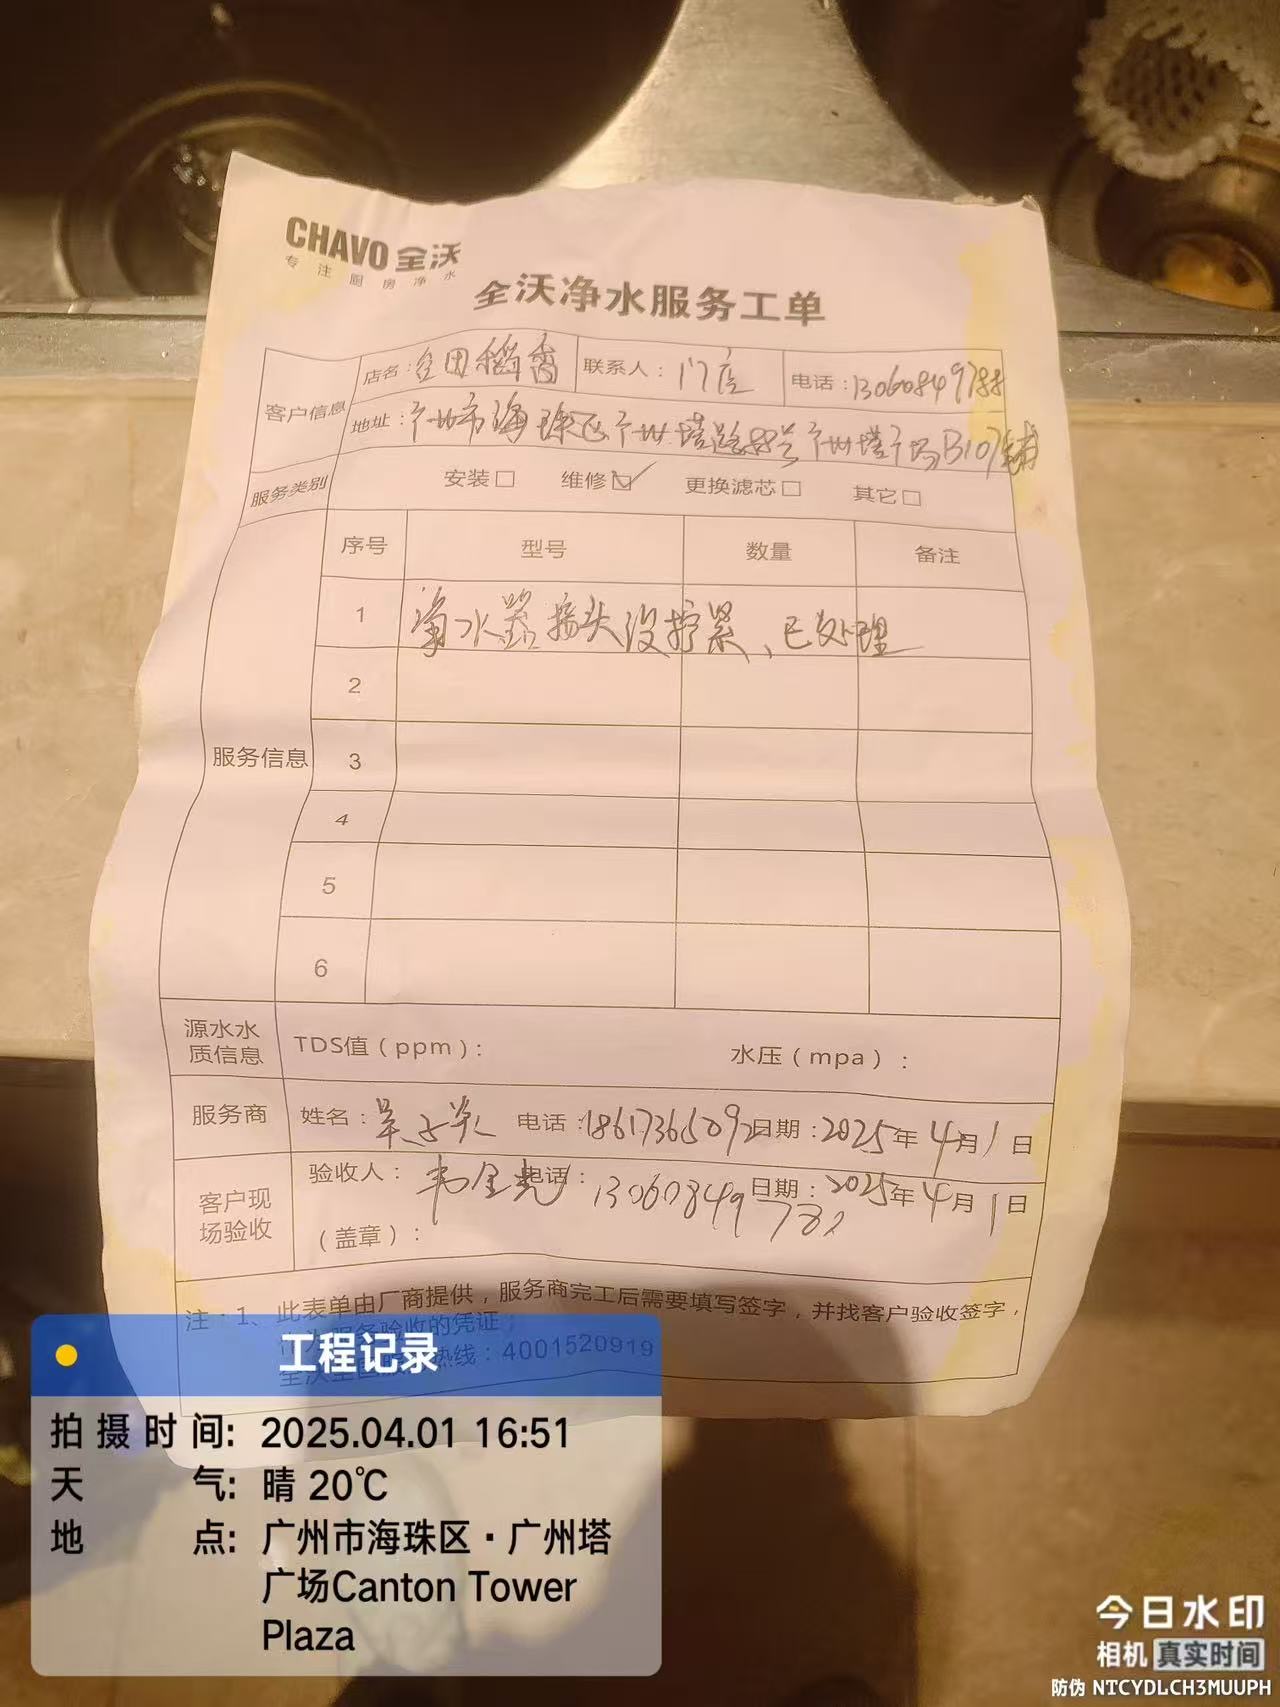 CHAVO 全沃
专注厨房净水
全沃净水服务工单
客户信息 店名： 联系人：门店 电话：
地址：广州市海珠区广州塔 广州塔广场B107铺
服务类别 安装□ 维修☑ 更换滤芯□ 其它□
服务信息 序号 型号 数量 备注
1 净水器接头没拧紧、已处理
2
3
4
5
6
源水水质信息 TDS值（ppm）： 水压（mpa）：
服务商 姓名： 电话：18617365092 日期：2025年4月1日
客户现场验收 验收人： 电话： 日期：2025年4月1日
（盖章）：
注：1、此表单由厂商提供，服务商完工后需要填写签字，并找客户验收签字，
服务验收的凭证；
热线：4001520919
工程记录
拍摄时间: 2025.04.01 16:51
天气: 晴 20℃
地点: 广州市海珠区·广州塔
广场Canton Tower
Plaza
今日水印
相机 真实时间
防伪 NTCYDLCH3MUUPH